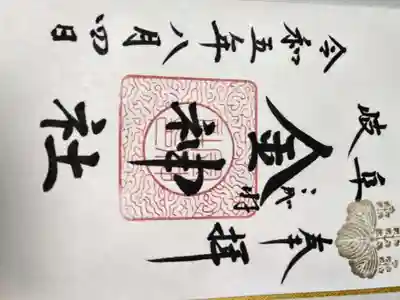 奉拝
岐阜
金神社
令和五年八月四日